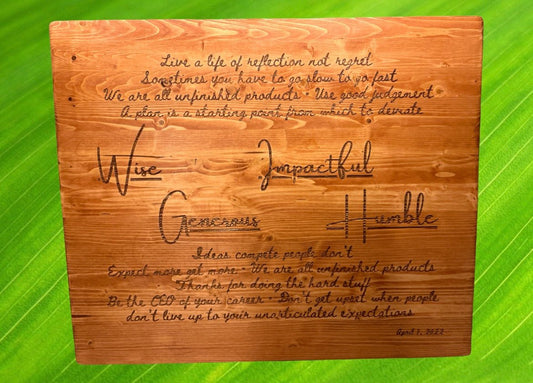 Live a life of reflection not regret
Sometimes you have to go slow to go fast
We are all unfinished products • Use good judgement
A plan is a starting point from which to deviate
Wise Impactful
Generous Humble
Ideas compete people don't
Expect more get more • We are all unfinished products
Thanks for doing the hard stuff
Be the CEO of your career • Don't get upset when people
don't live up to your unarticulated expectations
April 1, 2022